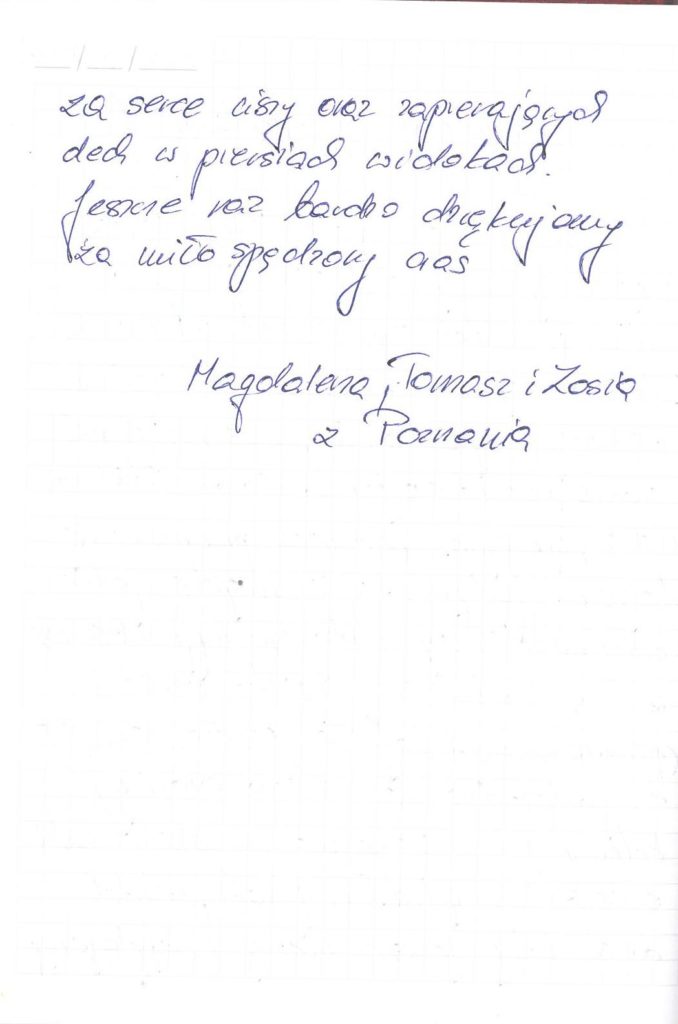 za serce ciszy oraz zapierających
dech w piersiach widokach.
Jeszcze raz bardzo dziękujemy
za miło spędzony czas
Magdalena, Tomasz i Zosia
z Poznania